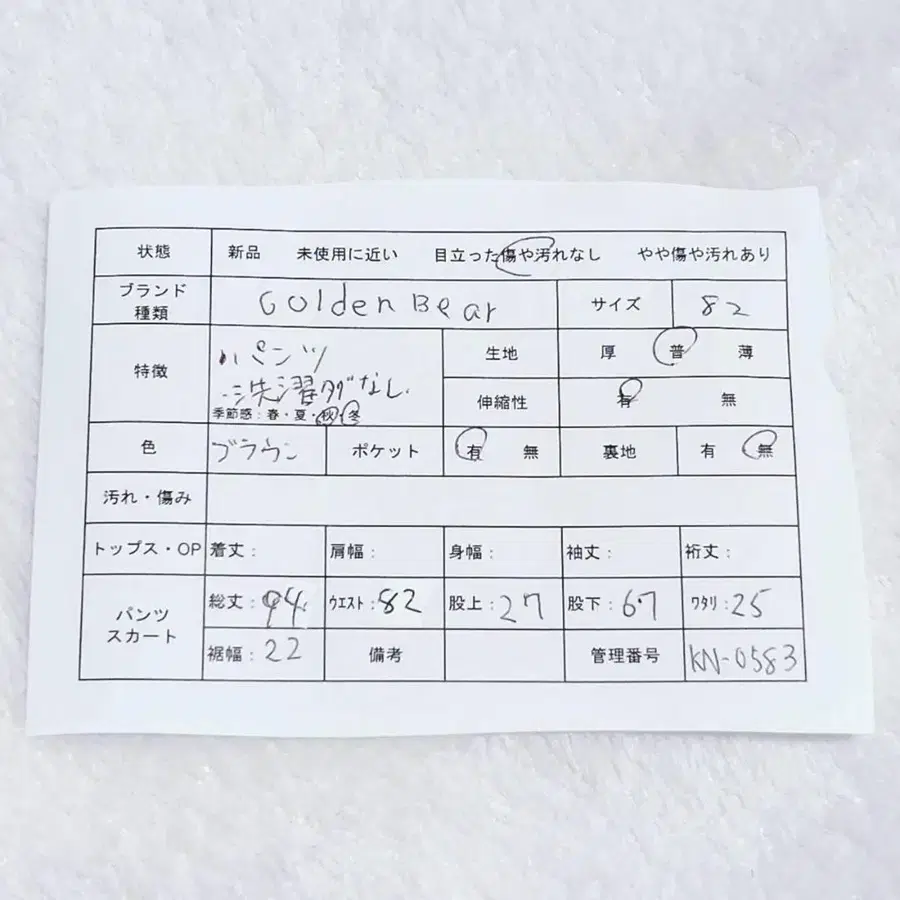 状態 新品 未使用に近い 目立った傷や汚れなし やや傷や汚れあり
ブランド種類 Golden Bear サイズ 82
特徴 パンツ 生地 厚 普 薄
洗濯タグなし 伸縮性 有 無
季節感：春・夏・秋・冬
色 ブラウン ポケット 有 無 裏地 有 無
汚れ・傷み
トップス・OP 着丈： 肩幅： 身幅： 袖丈： 裄丈：
パンツ スカート 総丈：94 ウエスト：82 股上：27 股下：67 ワタリ：25
裾幅：22 備考 管理番号 KN-0583